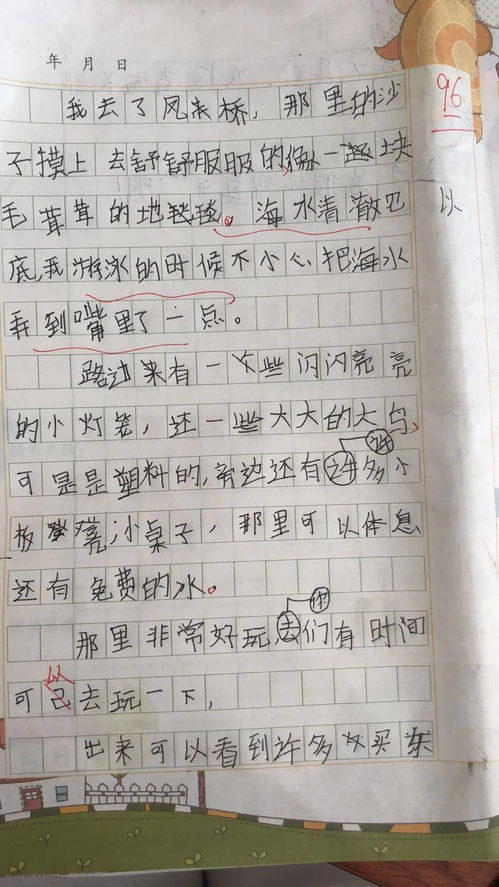 年 月 日
我去了凤来桥，那里的沙
96
子摸上去舒舒服服的像一块
以
毛茸茸的地毯。海水清澈见
底,我游泳的时候不小心把海水
弄到嘴里了一点。
路过来有一些闪闪亮亮
的小灯笼，还一些大大的大鸟
可是是塑料的,旁边还有许多小
板凳小桌子，那里可以体息
还有免费的水。
你
那里非常好玩去们有时间
以
可己去玩一下，
出来可以看到许多买东